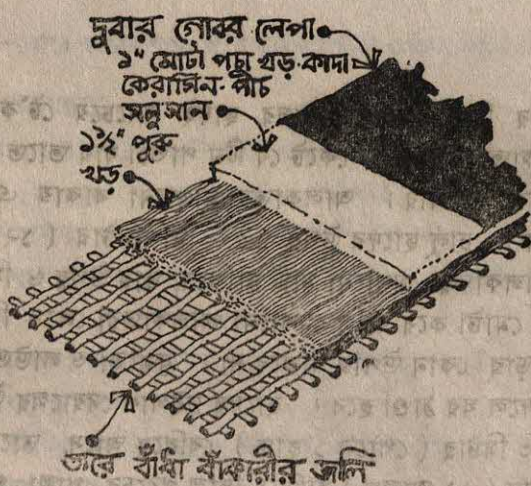 দুবার গোবর লেপা
১" মোটা পচা খড়-কাদা
কেরাসিন-পীচ
সলুসান
১½" পুরু
খড়
তারে বাঁধা বাঁকারীর জালি